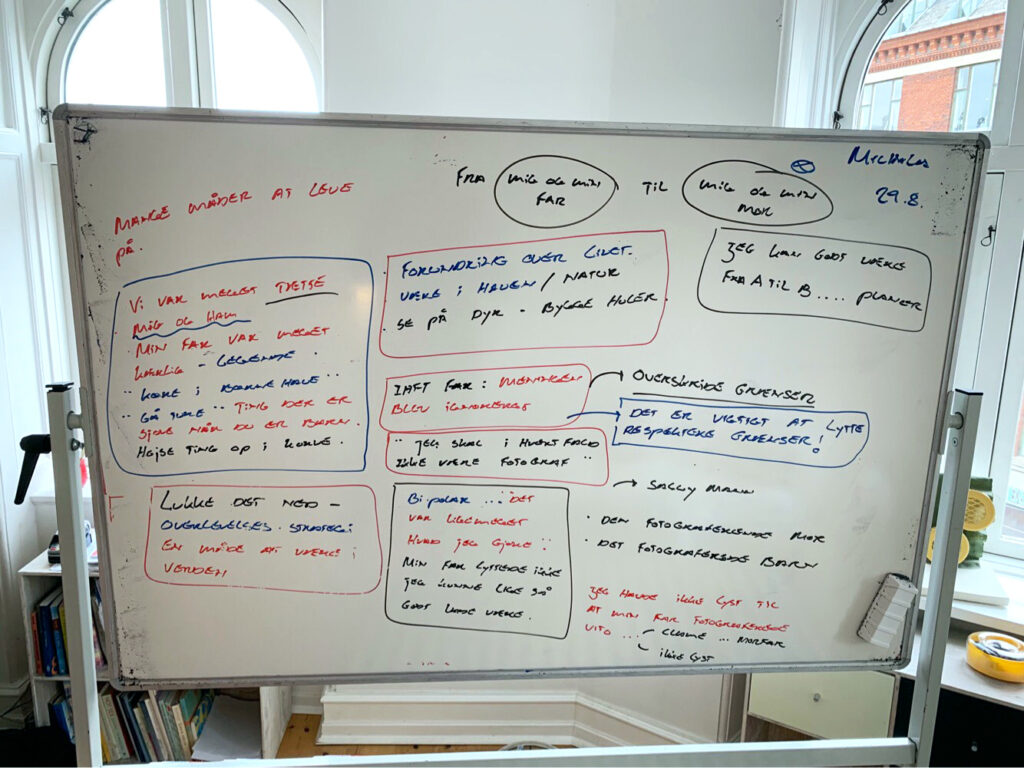 MANGE MÅDER AT LEVE
PÅ.
FRA MIG OG MIN FAR TIL MIG OG MIN MOR
29.8.
VI VAR MEGET TÆTTE
MIG OG HAM
MIN FAR VAR MEGET
KÆRLIG - LEGENDE.
" KØRE I BARNE
" GÅ " TING DER ER
SJOVE NÅR DU ER BARN.
HEJSE TING OP I KURVE.
FORUNDRING OVER LIVET.
VÆRE I HAVEN / NATUR
. SE PÅ DYR - BYGGE HULER.
JEG KAN GODT VÆRE
FRA A TIL B .... PLANER
FAR: MENINGEN
BLEV IGNORERET
OVERSKRIDE GRÆNSER
DET ER VIGTIGT AT LYTTE
RESPEKTERE GRÆNSER!
" JEG SKAL I HVERT FALD
IKKE VÆRE FOTOGRAF "
→ SALLY MANN
LUKKE DET NED -
OVERLEVELSES. STRATEGI:
EN MÅDE AT VÆRE I
VERDEN
BIPOLAR ... DET
VAR LIGEMEGET
HVAD JEG GJORDE
MIN FAR LYTTEDE IKKE
JEG KUNNE LIGE SÅ
GODT VÆRE.
. DEN FOTOGRAFERENDE MOR
. DET FOTOGRAFEREDE BARN
JEG HAVDE IKKE LYST TIL
AT MIN FAR FOTOGRAFEREDE
VITO ... MORFAR
IKKE LYST